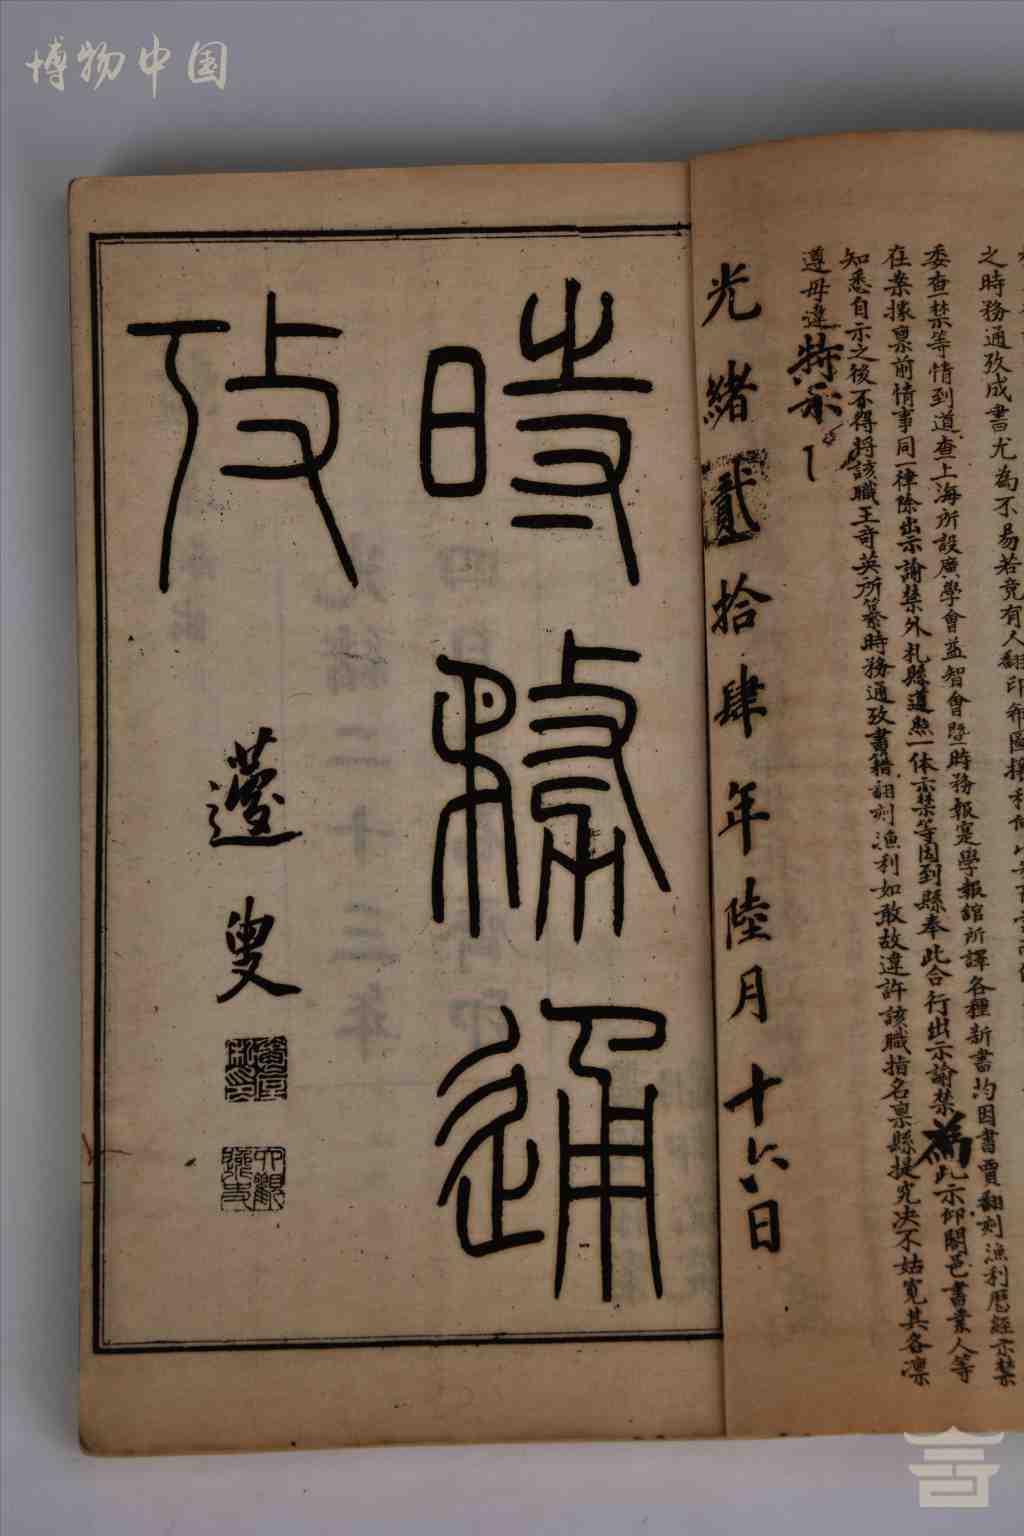 博物中国
之時務通攷成書尤為不易若竟有人翻印希圖
委查禁等情到道查上海所設廣學會益智會暨時務報寔學報館所譯各種新書均因書賈翻刻漁利歷經示禁
在案據稟前情事同一律除出示諭禁外札縣遵照一体示禁等因到縣奉此合行出示諭禁為此示仰闔邑書業人等
知悉自示之後不得将該職王奇英所纂時務通攷書籍翻刻漁利如敢故違許該職指名稟縣提究决不姑寬其各凜
遵毋違特示
光緒貳拾肆年陸月十六日
時務通
攷
叟
光緒二十三年